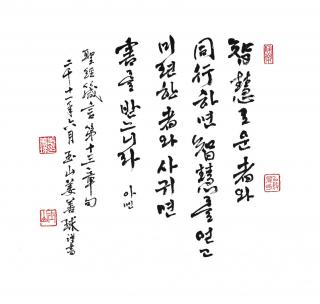 智慧로운 者와
同行하면 智慧를 얻고
미련한 者와 사귀면
害를 받느니라 아멘
聖經箴言 第十三章句
二千十一年六月 玉山 姜善球 謹書